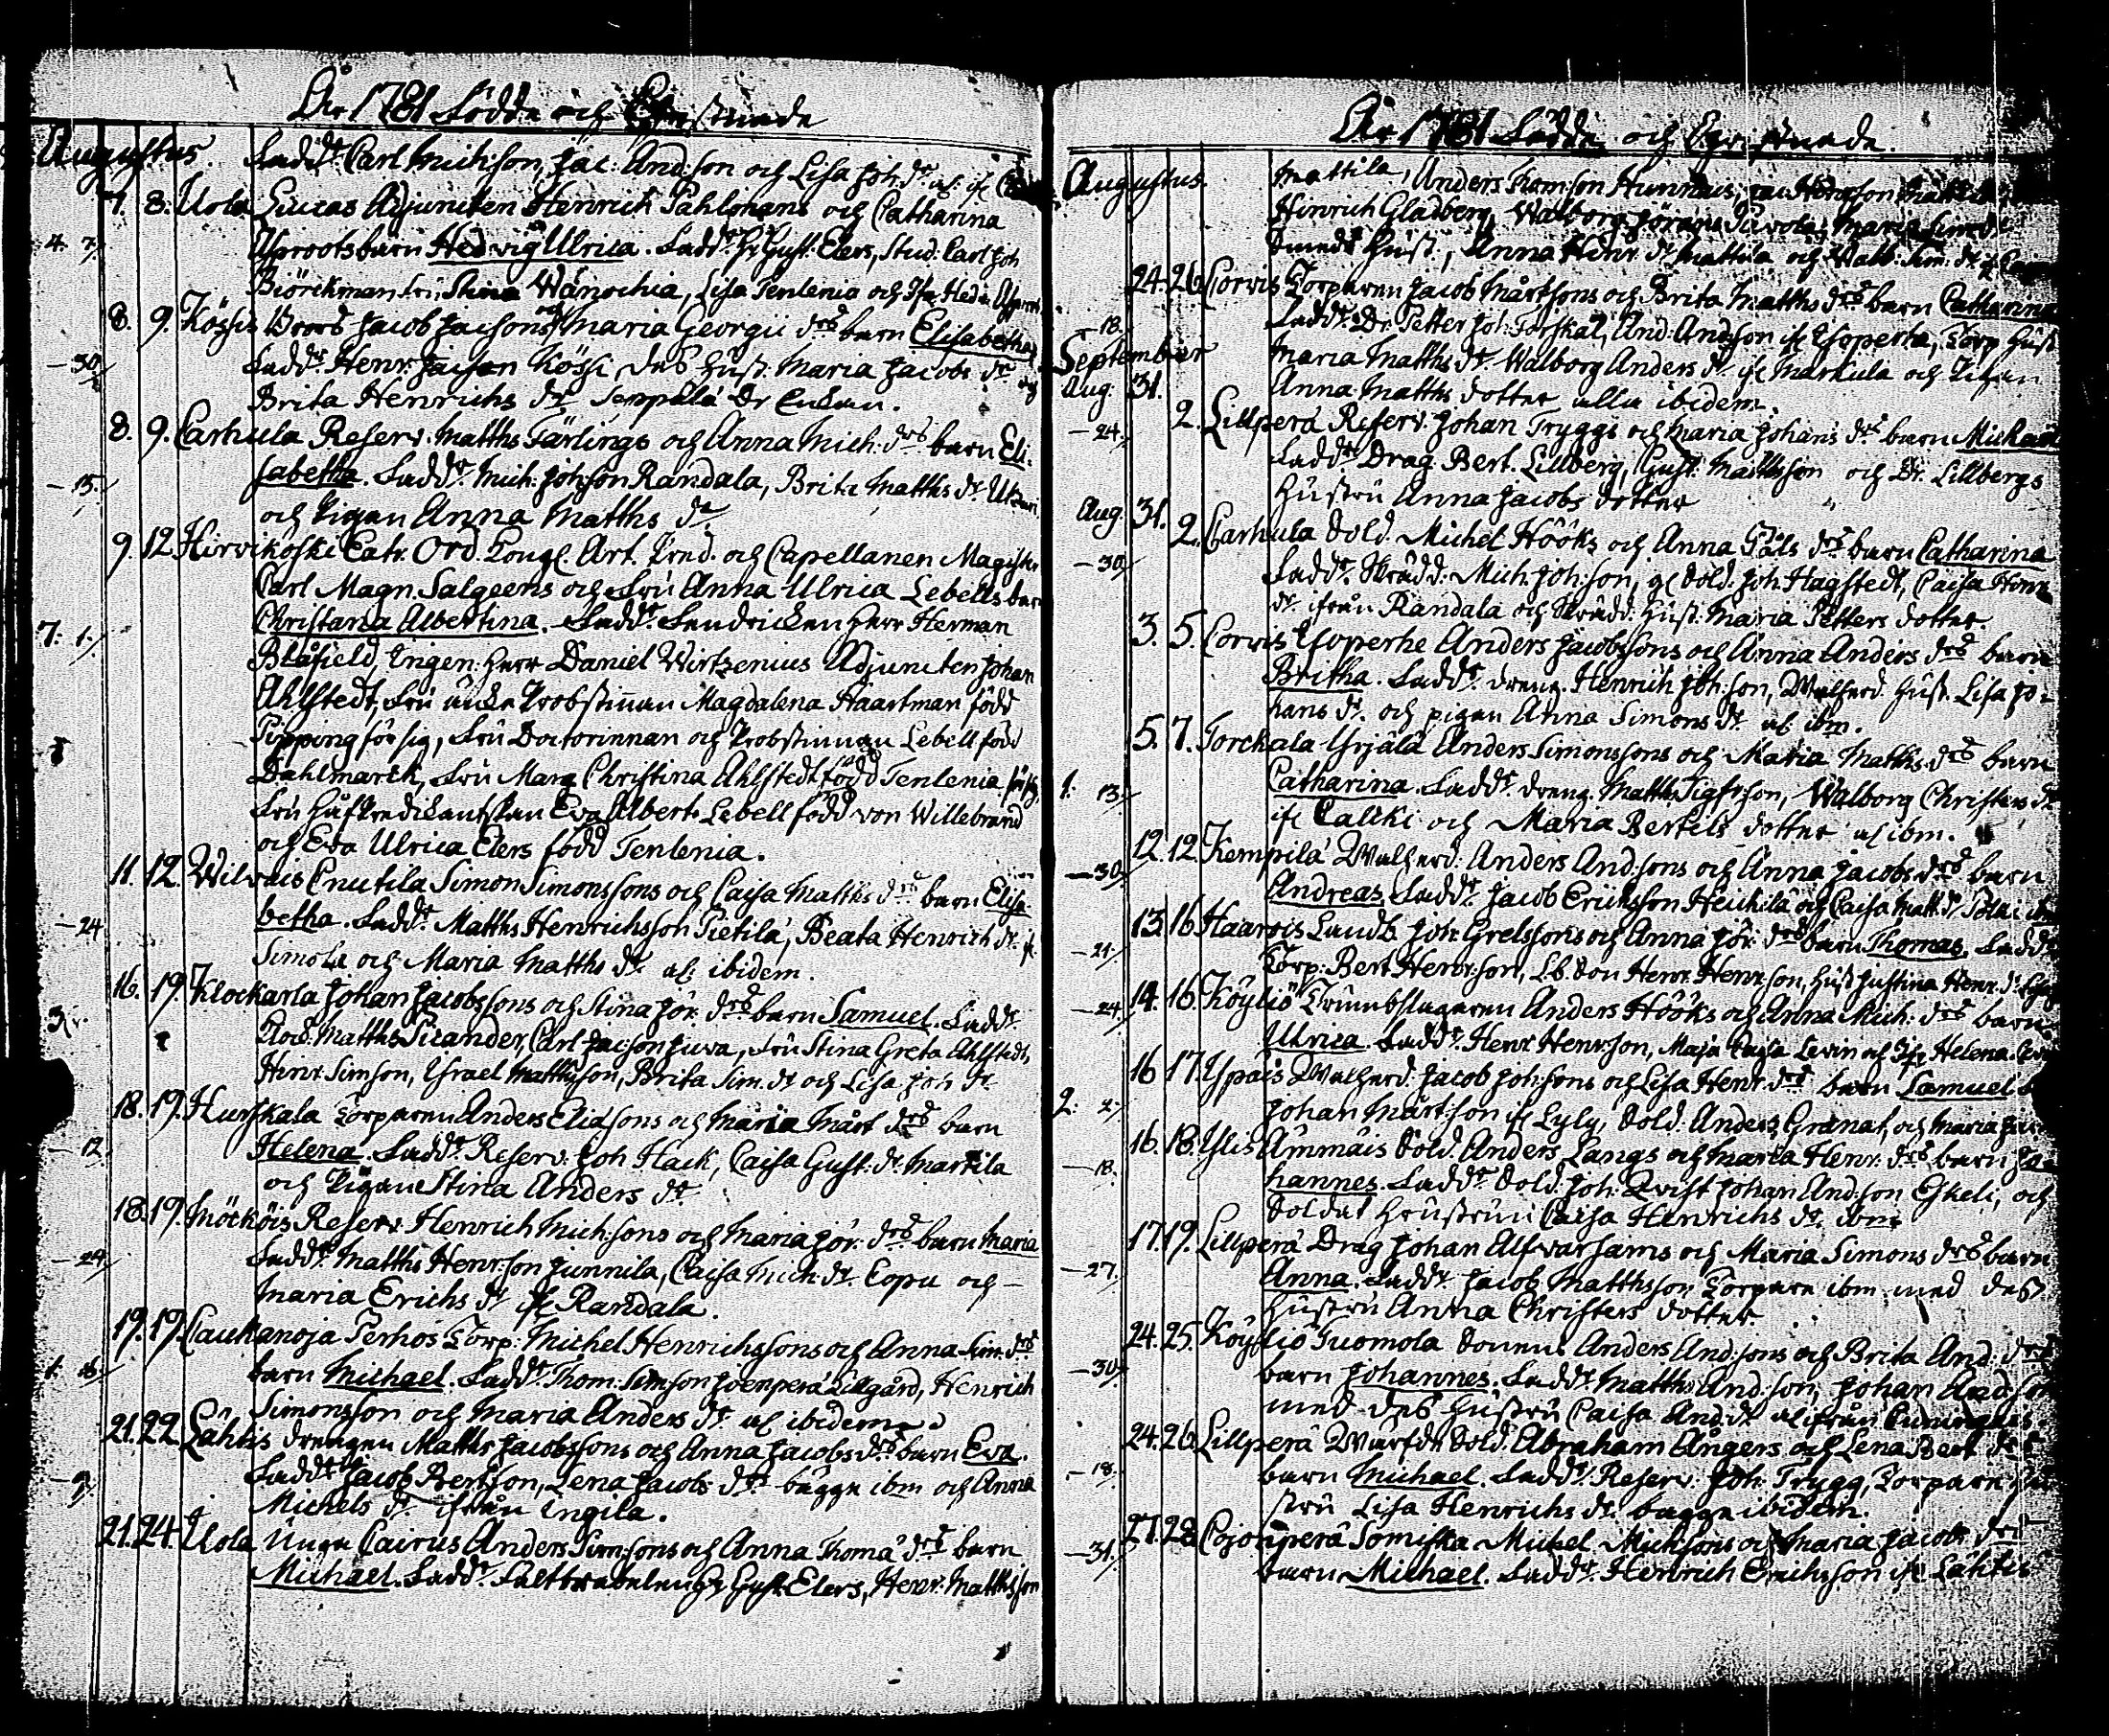 År 1781 Födde och Christnade
Augustus. Fadd:r Carl Mich:son, Jac: And:son och Lisa Joh: dr
7. 8. Uola Lucas Adjuncten Henrich Pahlmans och Catharina
4. 7. Asproots barn Hedvig Ulrica. Fadd:r Hr Gust: Elers, Stud: Carl Joh
Biörckman Fru Stina Wänochia, Lisa Tenlenia och
8. 9. Kössis Jacob Jacsons och Maria Georgii drs barn Elisabetha
– 30 Fadd:r Henr: Jacson Kössi, des Hust: Maria Jacobs dr och
Brita Henrichs dr Seppälä
8. 9. Carhula Reserv: Matths Färlings och Anna Mich: drs barn Eli-
– 15. sabetha. Fadd:r Mich: Joh:son Randala, Brita Matths dr
och Pigan Anna Matths dr
9. 12 Hirvikoski Extr. Ord. Kongl. Art. Pred. och Capellanen Magist:
Carl Magn. Salgeens och Fru Anna Ulrica Lebells barn
7. 1. Christana Albertina. Fadd:r Herr Herman
Blåfield, Ingen: Herr Daniel Wirtzenius Adjuncten Johan
Ahlstedt, Fru Probstinnan Magdalena Haartman född
Pipping för sig, Fru Doctorinnan och Probstinnan Lebell född
Dahlmarck, Fru Marg Christina Ahlstedt född Tenlenia
Fru Eva Albert: Lebell född von Willebrand
och Eva Ulrica Elers född Tenlenia.
11. 12. Wilvais Cnutila Simon Simonssons och Caisa Matths drs barn Elisa-
– 24 betha. Fadd:r Matths Henrichsson Pietilä, Beata Henrich dr
Simola och Maria Matths dr ibidem.
16. 19. Klockarla Johan Jacobssons och Stina Jör: drs barn Samuel. Fadd:r
3. Matths Sirander, Carl Jac:son Juva, Fru Stina Greta Ahlstedt,
Hinr: Simson, Israel Matthsson, Brita Sim: dr och Lisa Joh dr
18. 19. Hurskala Torparen Anders Eliæsons och Maria Mårt drs barn
– 12 Helena. Fadd:r Reserv: Joh Hack, Caisa Gust: dr Martila
och Pigan Stina Anders dr
18. 19. Möcköis Reserv: Henrich Mich:sons och Maria Jör: drs barn Maria
– 24 Fadd:r Matths Henr:son Junnila, Caisa Mich: dr Eopu och –
Maria Erichs dr Randala.
19. 19. Caukanoja Perhos Torp: Michel Henrichssons och Anna Sim: drs
1. 16 barn Michael. Fadd:r Thom: Simson Joenperä Lillgård, Henrich
Simonsson och Maria Anders dr ibidem
21. 22. Lähtis drengen Matths Jacobssons och Anna Jacobs drs barn Eva.
– 9 Fadd:r Jacob Bertsson, Lena Jacobs dr bägge ibm och Anna
Michels dr ifrån Ingila.
21. 24. Uola Unga Cairus Anders Sim:sons och Anna Thoma drs barn
Michael. Fadd:r Hr Gust: Elers, Henr: Matthsson
År 1781 Födde och Christnade.
Augustus. Mattila, Anders Thomson Hunnaus,
Hinrich Gladberg, Walborg Maria
Hust:, Anna Henr: dr Mattila och
24. 26. Corvis Torparen Jacob Mårtsons och Brita Matths drs barn Catharina
– 18. Fadd:r Petter Joh: Forskål, And: Andson Isoperha, Torp Hust
September Maria Matths dr Walborg Anders dr Markula och Pigan
Aug. 31. Anna Matths dotter alla ibidem.
2. Lillperä Reserv: Johan Tryggs och Maria Johans drs barn Michael
– 24. Fadd:r Drag: Bert. Lillberg, Gust: Matthsson och Dr. Lillbergs
Hustru Anna Jacobs dotter
Aug. 31. 2. Carhula Sold. Michel Hööks och Anna Påls drs barn Catharina
– 30 Fadd:r Skrädd: Mich: Joh:son, Sold: Joh Hagstedt, Caisa Henr
dr ifrån Randala och Skrädd: Hust: Maria Petters dotter.
3. 5. Corvis Isoperhe Anders Jacobssons och Anna Anders drs barn
Britha. Fadd:r dreng: Henrich Joh:son, Hust: Lisa Jo-
hans dr och pigan Anna Simons dr ibm.
5. 7. Torckala Yrjälä Anders Simonssons och Maria Matths drs barn
1. 13. Catharina. Fadd:r dreng: Matths Walborg Christers dr
Calcki och Maria Bertils dotter ibm.
12. 12. Kempilä Anders And:sons och Anna Jacobs drs barn
– 30 Andreas. Fadd:r Jacob Erichsson Heickilä och Caisa Matt: dr
13 16 Haarois Landtb: Joh: Grelssons och Anna Jör: drs barn Thomas. Fadd:r
– 24 Torp: Bert Henr:son, Henr: Henr:son, Hust Justina Henr: dr
14. 16. Köyliö Trumbslagaren Anders Hööks och Anna Mich: drs barn
– 24 Ulrica. Fadd:r Henr Henr:son, Maja Cajsa Levin och Helena
16 17 Ypäis Jacob Joh:sons och Lisa Henr: drs barn Samuel
2. 2. Johan Mårt:son Lyly, Sold: Anders Granat, och Maria
16. 18. Ylis Ämmäis Sold: Anders Langs och Maria Henr: drs barn Jo-
– 18. hannes. Fadd:r Sold: Joh: Qvist Johan And:son Eskeli, och
Soldat Hustrun Caisa Henrichs dr ibm
17. 19. Lillperä Drag Johan Alfvarsams och Maria Simons drs barn
– 27. Anna. Fadd:r Jacob Matthsson Torpare ibm med des
Hustru Anna Christers dotter
24. 25. Köyliö Tuomola Sonens Anders And:sons och Brita And: drs
– 30. barn Johannes. Fadd:r Matths And:son, Johan And:son
med des Hustru Caisa And: dr ifrån
24. 26. Lillperä Sold: Abraham Ångers och Lena Bert drs
– 18. barn Michael. Fadd:r Reserv: Joh: Trygg, Torpare
stru Lisa Henrichs dr bägge ibidem.
27. 28. Cojonperä Somiska Michel Michsons och Maria Jacobs drs
– 31. barn Michael. Fadd:r Henrich Erichsson Lähtis